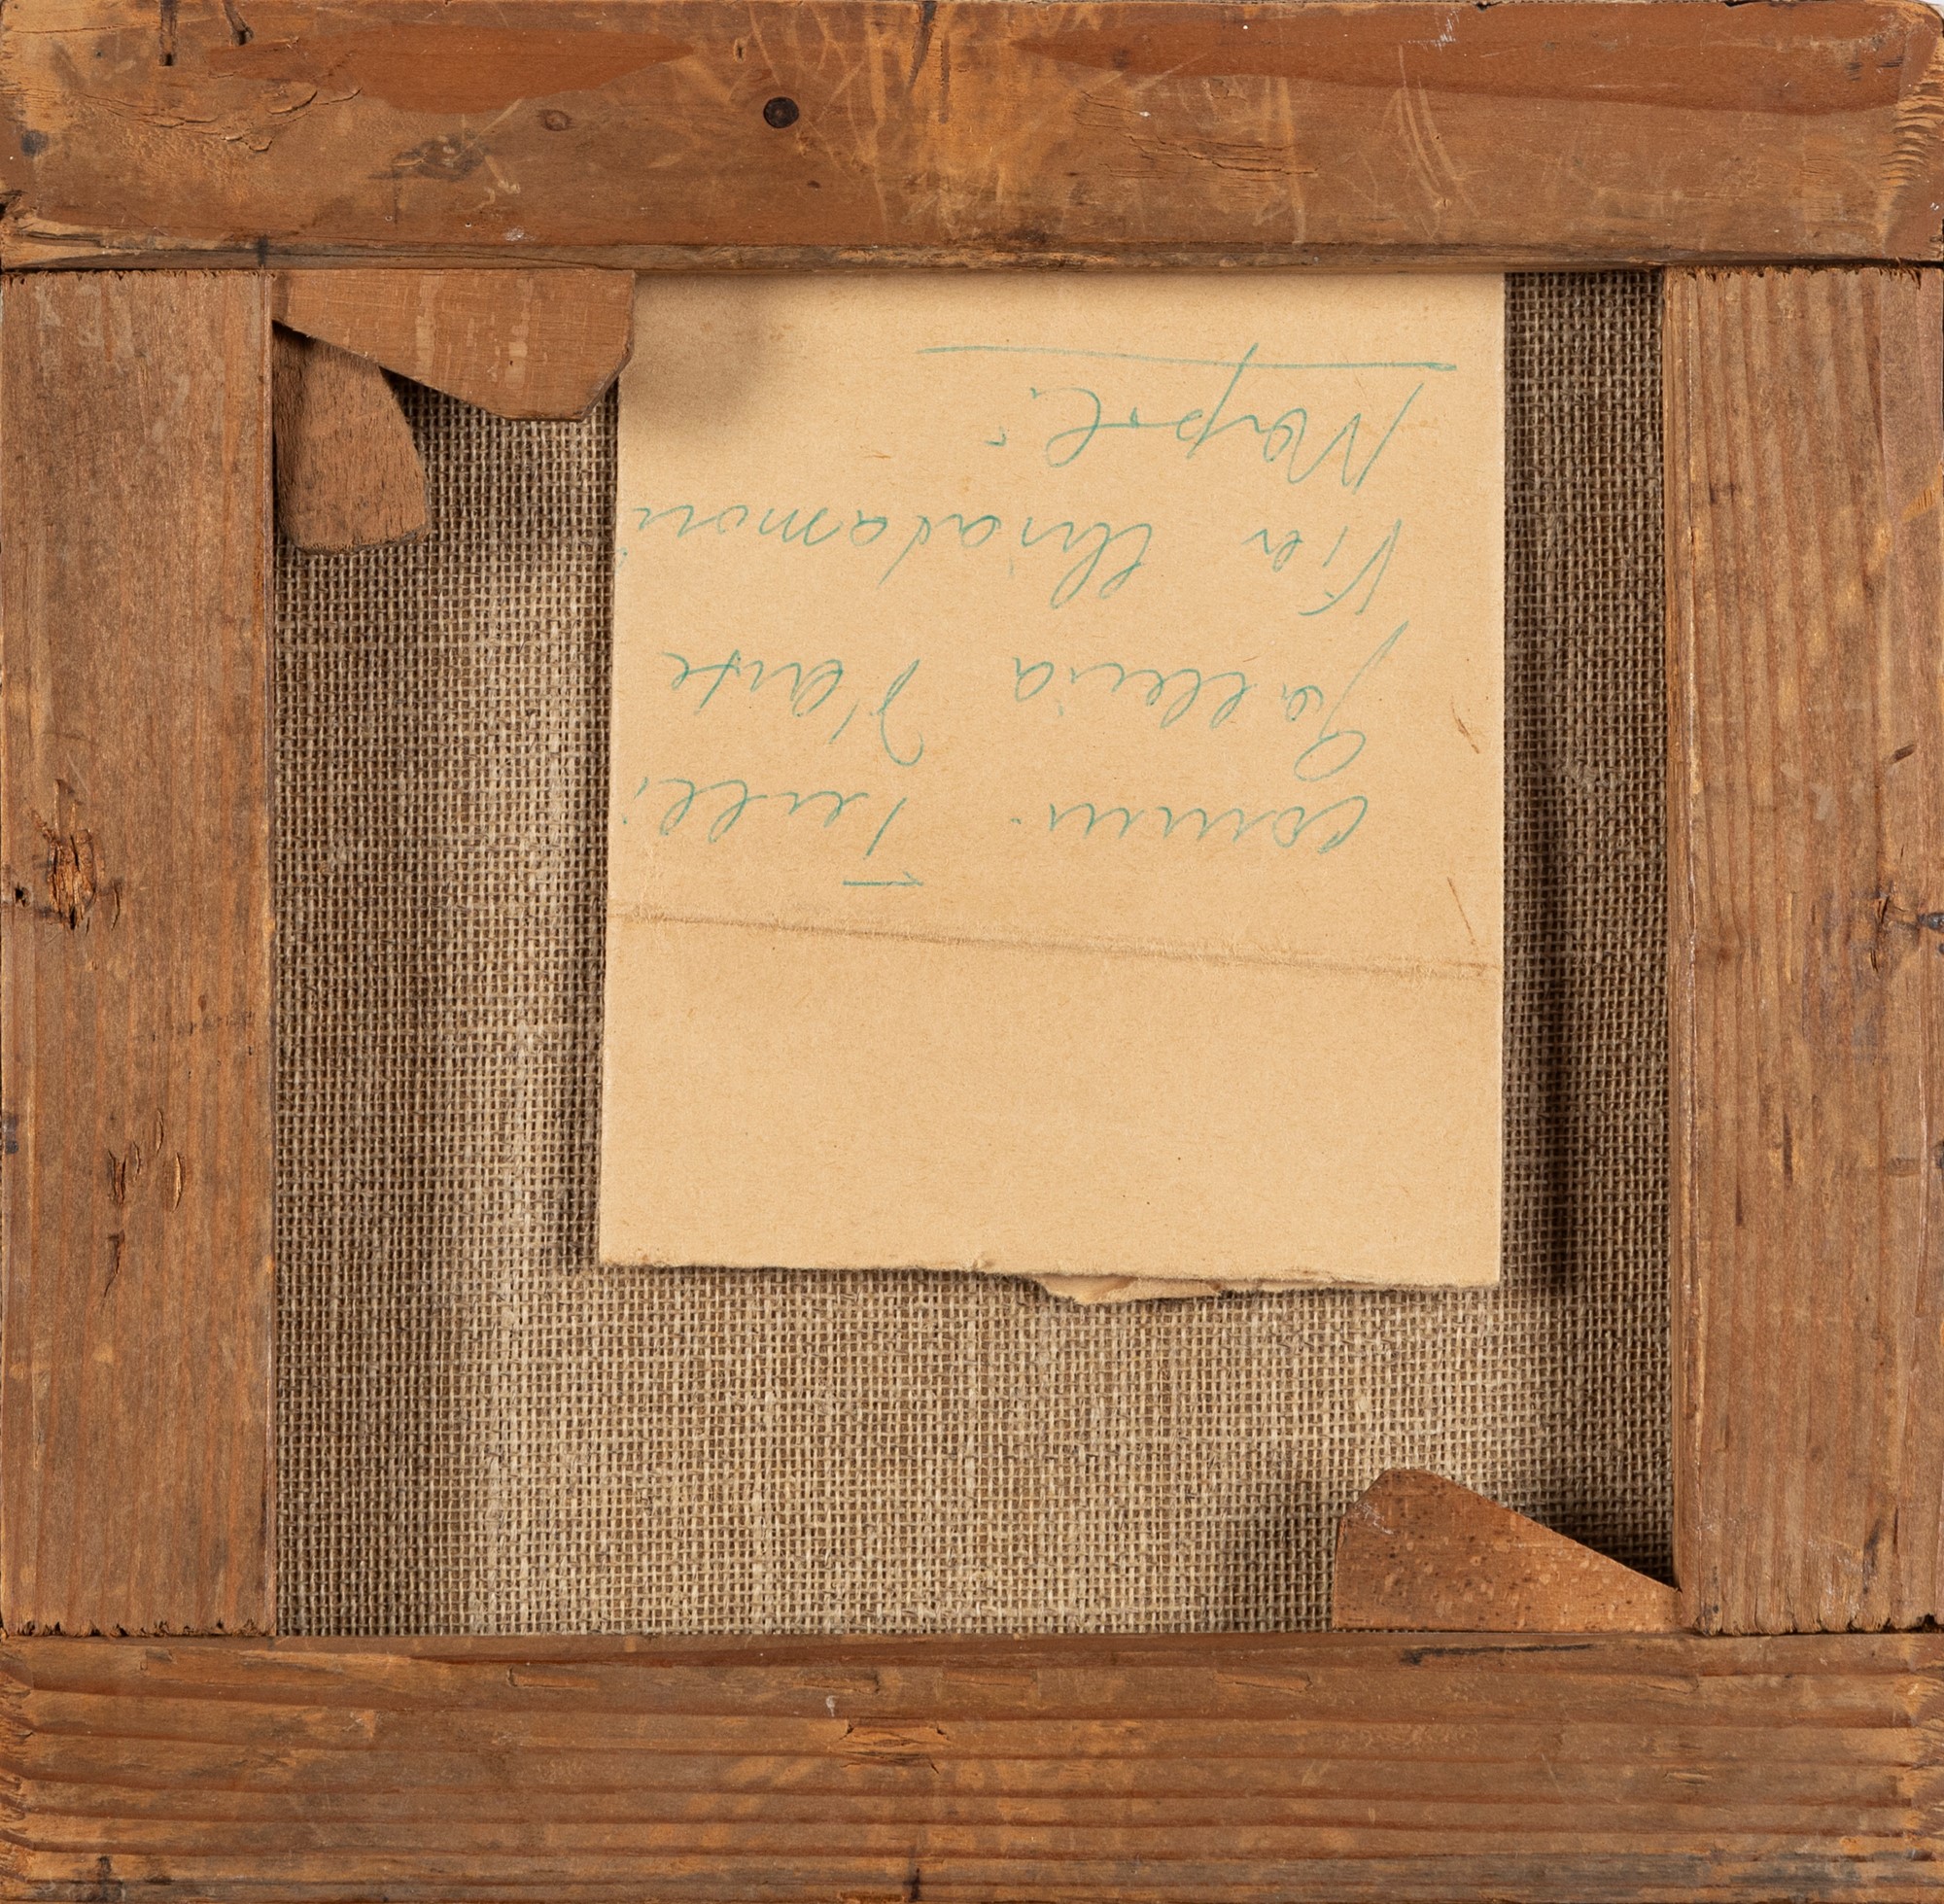 comm.
Galleria d'arte
Via Chiadamoni
Napoli